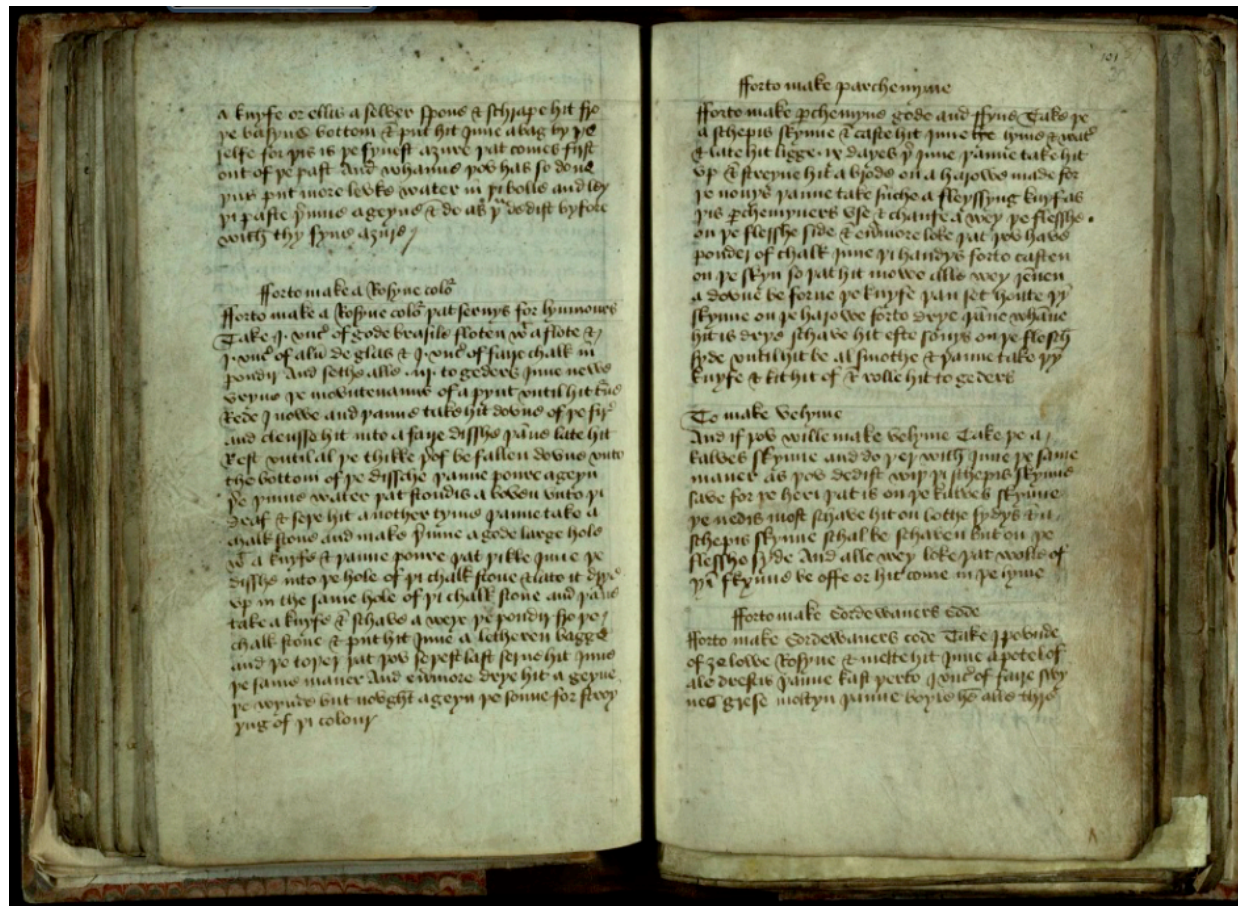 a knyfe or ellis a selver spone & schrape hit fro
þe basyns bottom & put hit Inne a bag by þe
selfe for þis is þe fynest azure þat comes fyrst
out of þe past And whanne þow has so done
put more lewke water in þi bolle and ley
þi paste þrinne ageyne & do as þu dedist byfore
with thy fyne azure
fforto make a Rosyne color
fforto make a Rosyne color þat servys for lymnours
Take .j. unce of gode brasile floten wt a flote &
.j. unce of alū de glas & .j. unce of faire chalk in
poudir And sethe alle .iij. to geders Inne newe
uryne þe mountenanns of a pynt until hit
Rede I nowe and þanne take hit doune of þe fir
and clensse hit into a faire disshe þāne late hit
Rest until al þe thikke þrof be fallen doune unto
the bottom of þe dissche þanne poure ageyn
þe þinne water þat stondis a boven unto þi
& seþe hit another tyme þanne take a
chalk stone and make þrinne a gode large hole
wt a knyfe & þanne poure þat þikke Inne þe
disshe into þe hole of þi chalk stone & late it drye
up in the same hole of þi chalk stone and þāne
take a knyfe & schave a wey þe poudir fro þe
chalk stone & put hit Inne a letheren bagge
and þe toþer þat þow seþest last serve hit Inne
þe same maner And evermore drye hit a geyne
þe wynde but nought ageyn þe sonne for
yng of þi colour
101
fforto make parchemyne
fforto make pchemyne gode and ffyne Take þe
a schepis skynne & caste hit Inne lyme & wat
& late hit ligge .ix dayes þr Inne þanne take hit
up & streyne hit a brode on a harowe made for
þe nonys þanne take suche a fleyssyng knyf as
þis pchemyners use & a wey þe flesshe
on þe flesshe side & evermore loke þat þow have
pouder of chalk Inne þi handys forto casten
on þe skyn so þat hit mowe alle wey
a doune be forne þe knyfe þan set
skynne on þe harowe forto drye þāne whāne
hit is drye schave hit efte sonys on þe flessh
syde until hit be al smothe & þanne take
knyfe & kit hit of & rolle hit to geders
To make velyme
And if þow wille make velyme Take þe a
kalves skynne and do þer with Inne þe same
maner as þow dedist wiþ þi schepis skynne
save for þe heri þat is on þe kalves skynne
þe nedis most schave hit on bothe sydys & a
schepis skynne schal be schaven but on þe
flesshe syde And alle wey loke þat wolle of
skynne be offe or hit come in þe lyme
fforto make Cordewaners Code
fforto make Cordewaners code Take j pounde
of zelowe Rosyne & melte hit Inne a potel of
ale drestis þanne kast þerto j unce of faire swy
nes grese moltyn þanne